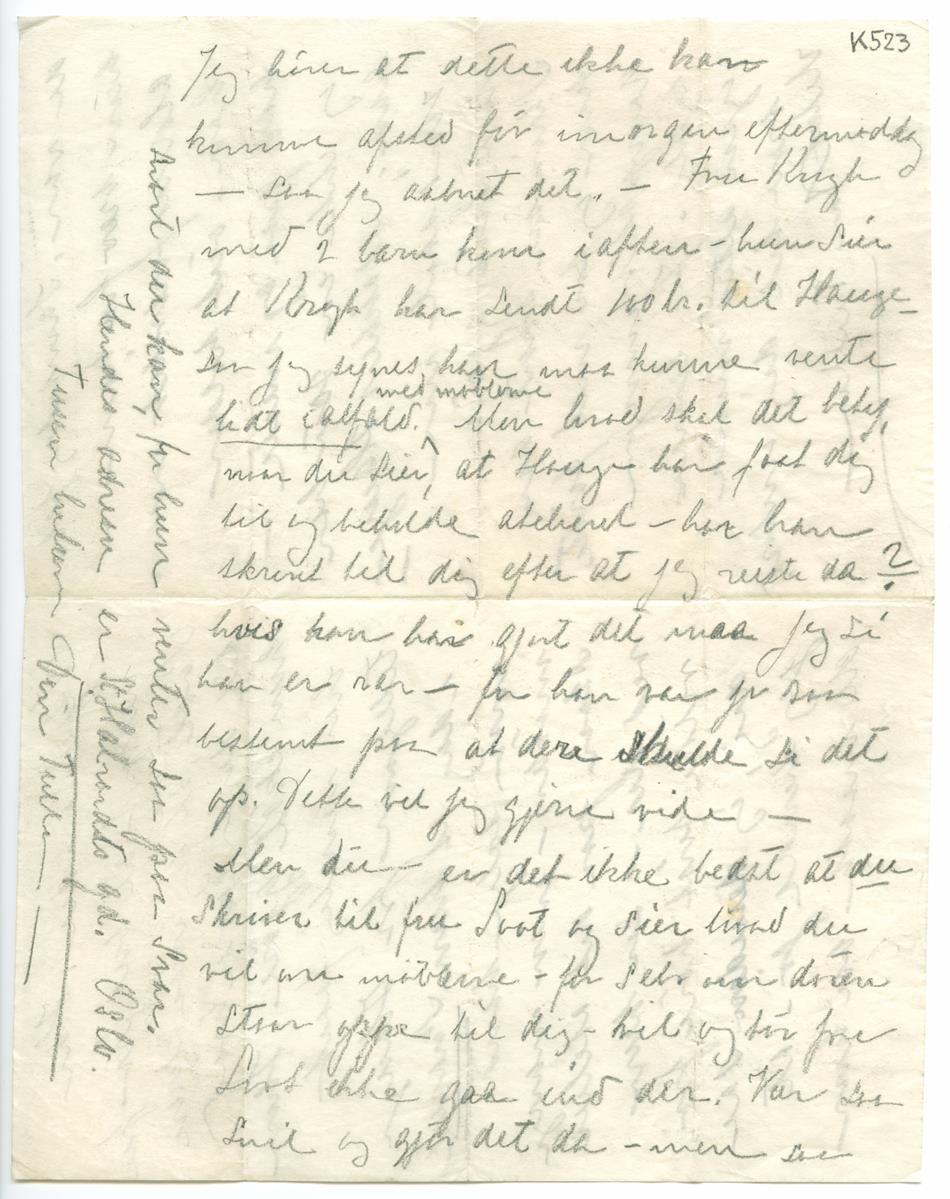 K523
Jeg hører at dette ikke kan
komme afsted før imorgen eftermiddag
— saa jeg aabnet det. — Fru Krogh
med 2 barn kom iaften – hun sier
at Krogh har sendt 100 kr. til Hauge –
saa jeg synes han maa kunne vente
med møblerne
lidt ialfald. Men hvad skal det bety,
naar du sier, at Hauge har faat dig
til og beholde atelieret – har han
skrevet til dig efter at jeg reiste da ?
hvis han har gjort det maa jeg si
han er rar – for han var jo saa
bestemt paa at dere skulde si det
op. Dette vil jeg gjerne vide —
Men du – er det ikke bedst at du
skriver til fru Svot og sier hvad du
vil om møblerne – for selv om døren
staar oppe til dig – vil og tør fru
Svot ikke gaa ind der. Vær saa
snil og gjør det da – men saa
snart du kan, for hun venter saa paa Svar.
Hendes adresse er St. Halvardts gd. Oslo.
Tusen hilsen Din Tulla —